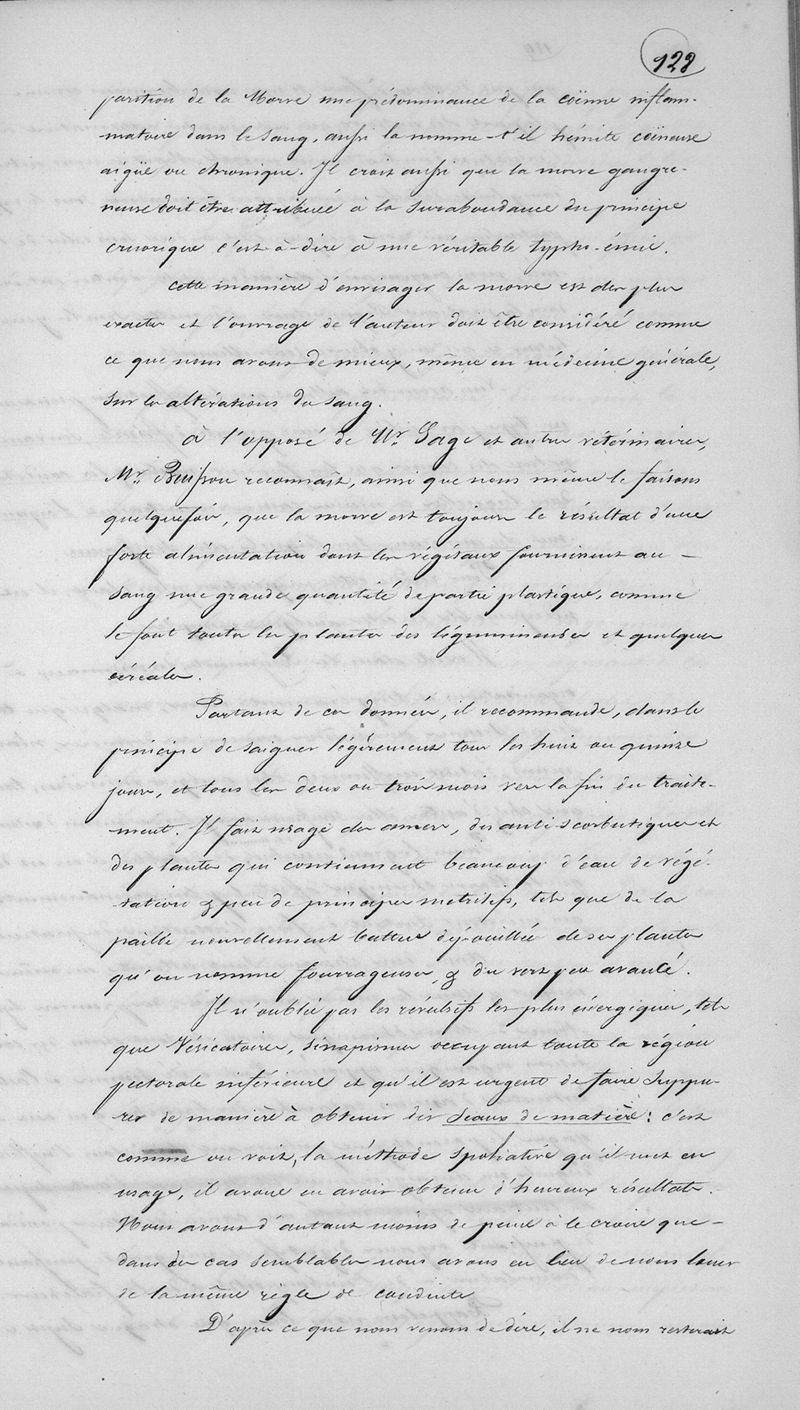 128
parition de la Morve une prédominance de la coënne inflam-
matoire dans le sang, aussi la nomme-t'il hémite coëneuse
aigüe ou chronique. Il croit aussi que la morve gangre-
neuse doit être attribuée à la surabondance du principe
cruorique c'est-à-dire à une véritable typho-émie.
cette manière d'envisager la morve est des plus
exactes et l'ouvrage de l'auteur doit être considéré comme
ce que nous avons de mieux, même en médecine générale,
sur les altérations du sang.
à l'opposé de Mr. Sage et autres vétérinaires,
Mr. Buisson reconnaît, ainsi que nous même le faisons
quelquefois, que la morve est toujours le résultat d'une
forte alimentation dont les végétaux fournissent au
sang une grande quantité de partie plastique, comme
le font toutes les plantes des légumineuses et quelques
céréales.
Partant de ces données, il recommande, dans le
principe de saigner légèrement tous les huit ou quinze
jours, et tous les deux ou trois mois vers la fin du traite-
ment. Il fait usage des amers, des antiscorbutiques et
des plantes qui contiennent beaucoup d'eau de végé-
tation & peu de principes nutritifs, tels que de la
paille nouvellement battue dépouillée de ses plantes
qu'on nomme fourrageuses, & du vert peu avancé.
Il n'oublie pas les révulsifs les plus énergiques, tels
que Vésicatoires, sinapismes occupant toute la région
pectorale inférieure et qu'il est urgent de faire suppu-
rer de manière à obtenir des seaux de matière: c'est
comme on voit, la méthode spoliative qu'il met en
usage, il avoue en avoir obtenu d'heureux résultats.
Nous avons d'autant moins de peine à le croire que
dans des cas semblables nous avons eu lieu de nous louer
de la même règle de conduite
D'après ce que nous venons de dire, il ne nous resterait